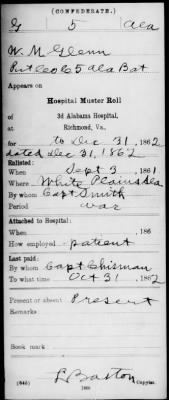 (CONFEDERATE.)
G 5 Ala
W. M. Glenn
Pvt Co C 5 Ala Bat
Appears on
Hospital Muster Roll
of 3d Alabama Hospital,
Richmond, Va.,
for to Dec 31, 1862
dated Dec 31, 1862
Enlisted:
When Sept 3, 1861
Where White Plains Ala
By whom Capt Smith
Period war
Attached to Hospital:
When , 186
How employed patient
Last paid:
By whom Capt Chisman
To what time Oct 31, 1862
Present or absent Present
Remarks
Book mark:
(646)
Copyist.